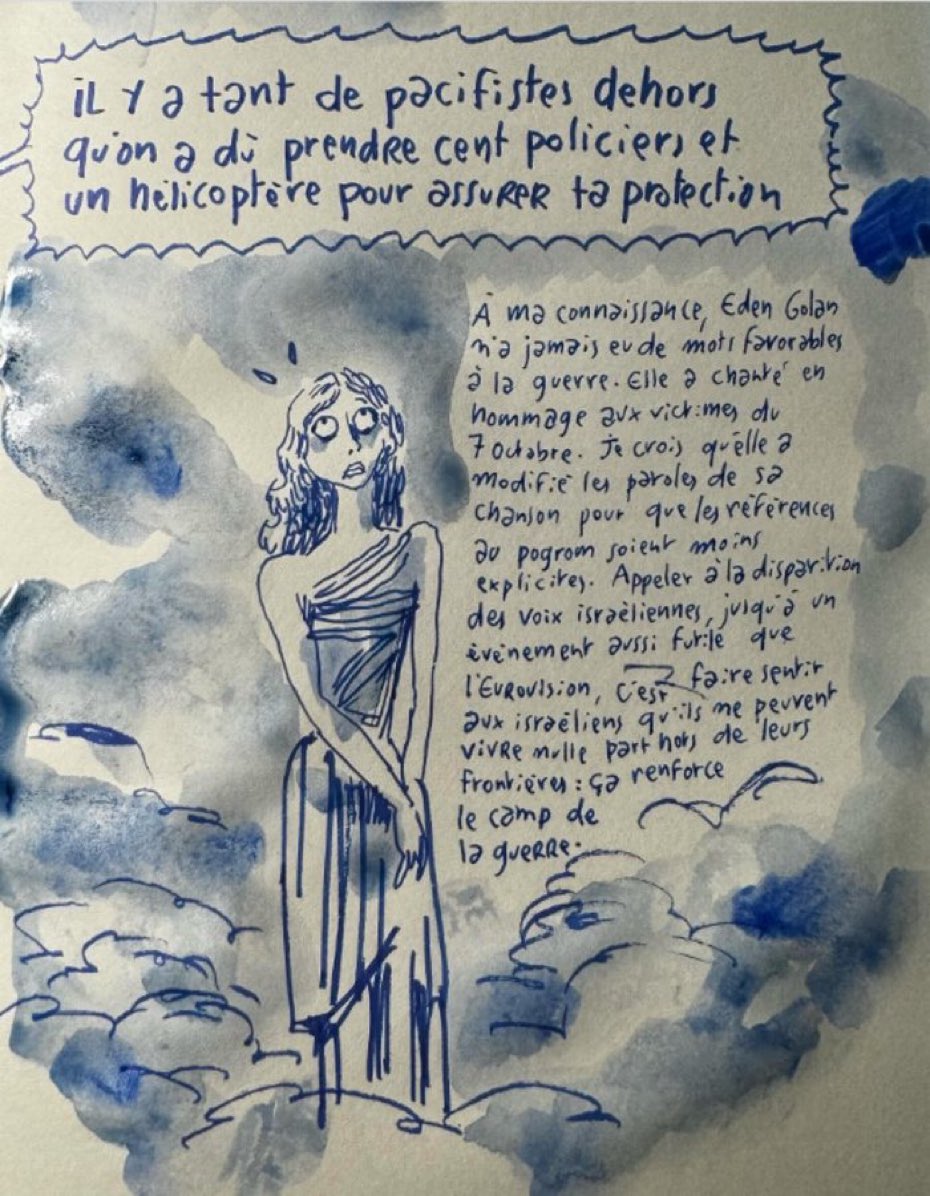 iL Y a tant de pacifistes dehors
qu'on a dû prendre cent policiers et
un hélicoptère pour assurer ta protection
À ma connaissance, Eden Golan
n'a jamais eu de mots favorables
à la guerre. Elle a chanté en
hommage aux victimes du
7 octobre. Je crois qu'elle a
modifié les paroles de sa
chanson pour que les références
au pogrom soient moins
explicites. Appeler à la disparition
des voix israéliennes, jusqu'à un
événement aussi futile que
l'Eurovision, c'est faire sentir
aux israéliens qu'ils ne peuvent
vivre nulle part hors de leurs
frontières : ça renforce
le camp de
la guerre.